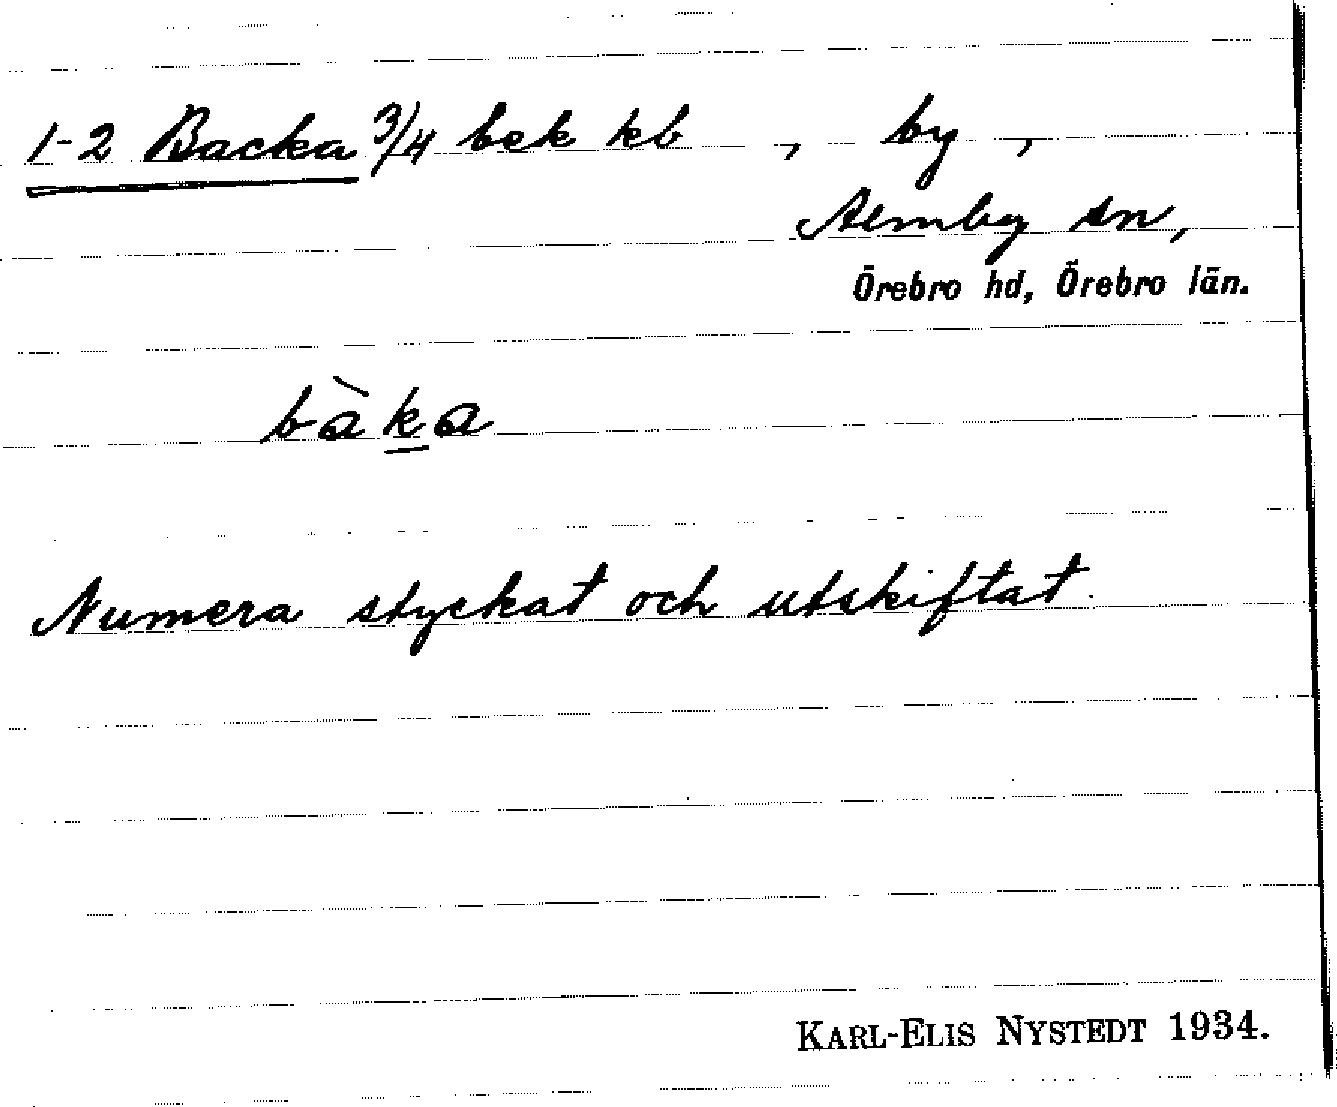 1-2 Backa 3/4 bek kb , by ,
Almby sn,
Örebro hd, Örebro län.
bàka
Numera styckat och utskiftat.
KARL-ELIS NYSTEDT 1934.